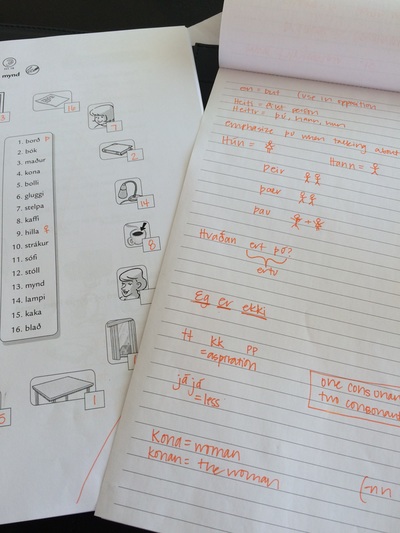 mynd
16
3
7
1. borð
2. bók
3. maður
4. kona
5. bolli
6. gluggi
7. stelpa
8. kaffi
9. hilla
10. strákur
11. sófi
12. stóll
13. mynd
14. lampi
15. kaka
16. blað
2
14
8
1
5
en = but (one in opposition
Heiti = first person
Heitir = þú, hann, hún
emphasize þú when talking about
Hún =
Hann =
þeir
þær
þau +
Hvaðan ert þú?
ertu
Ég er ekki
tt kk pp
= aspiration
já já
= less
one consonant
two consonant
Kona = woman
konan = the woman
(-nn